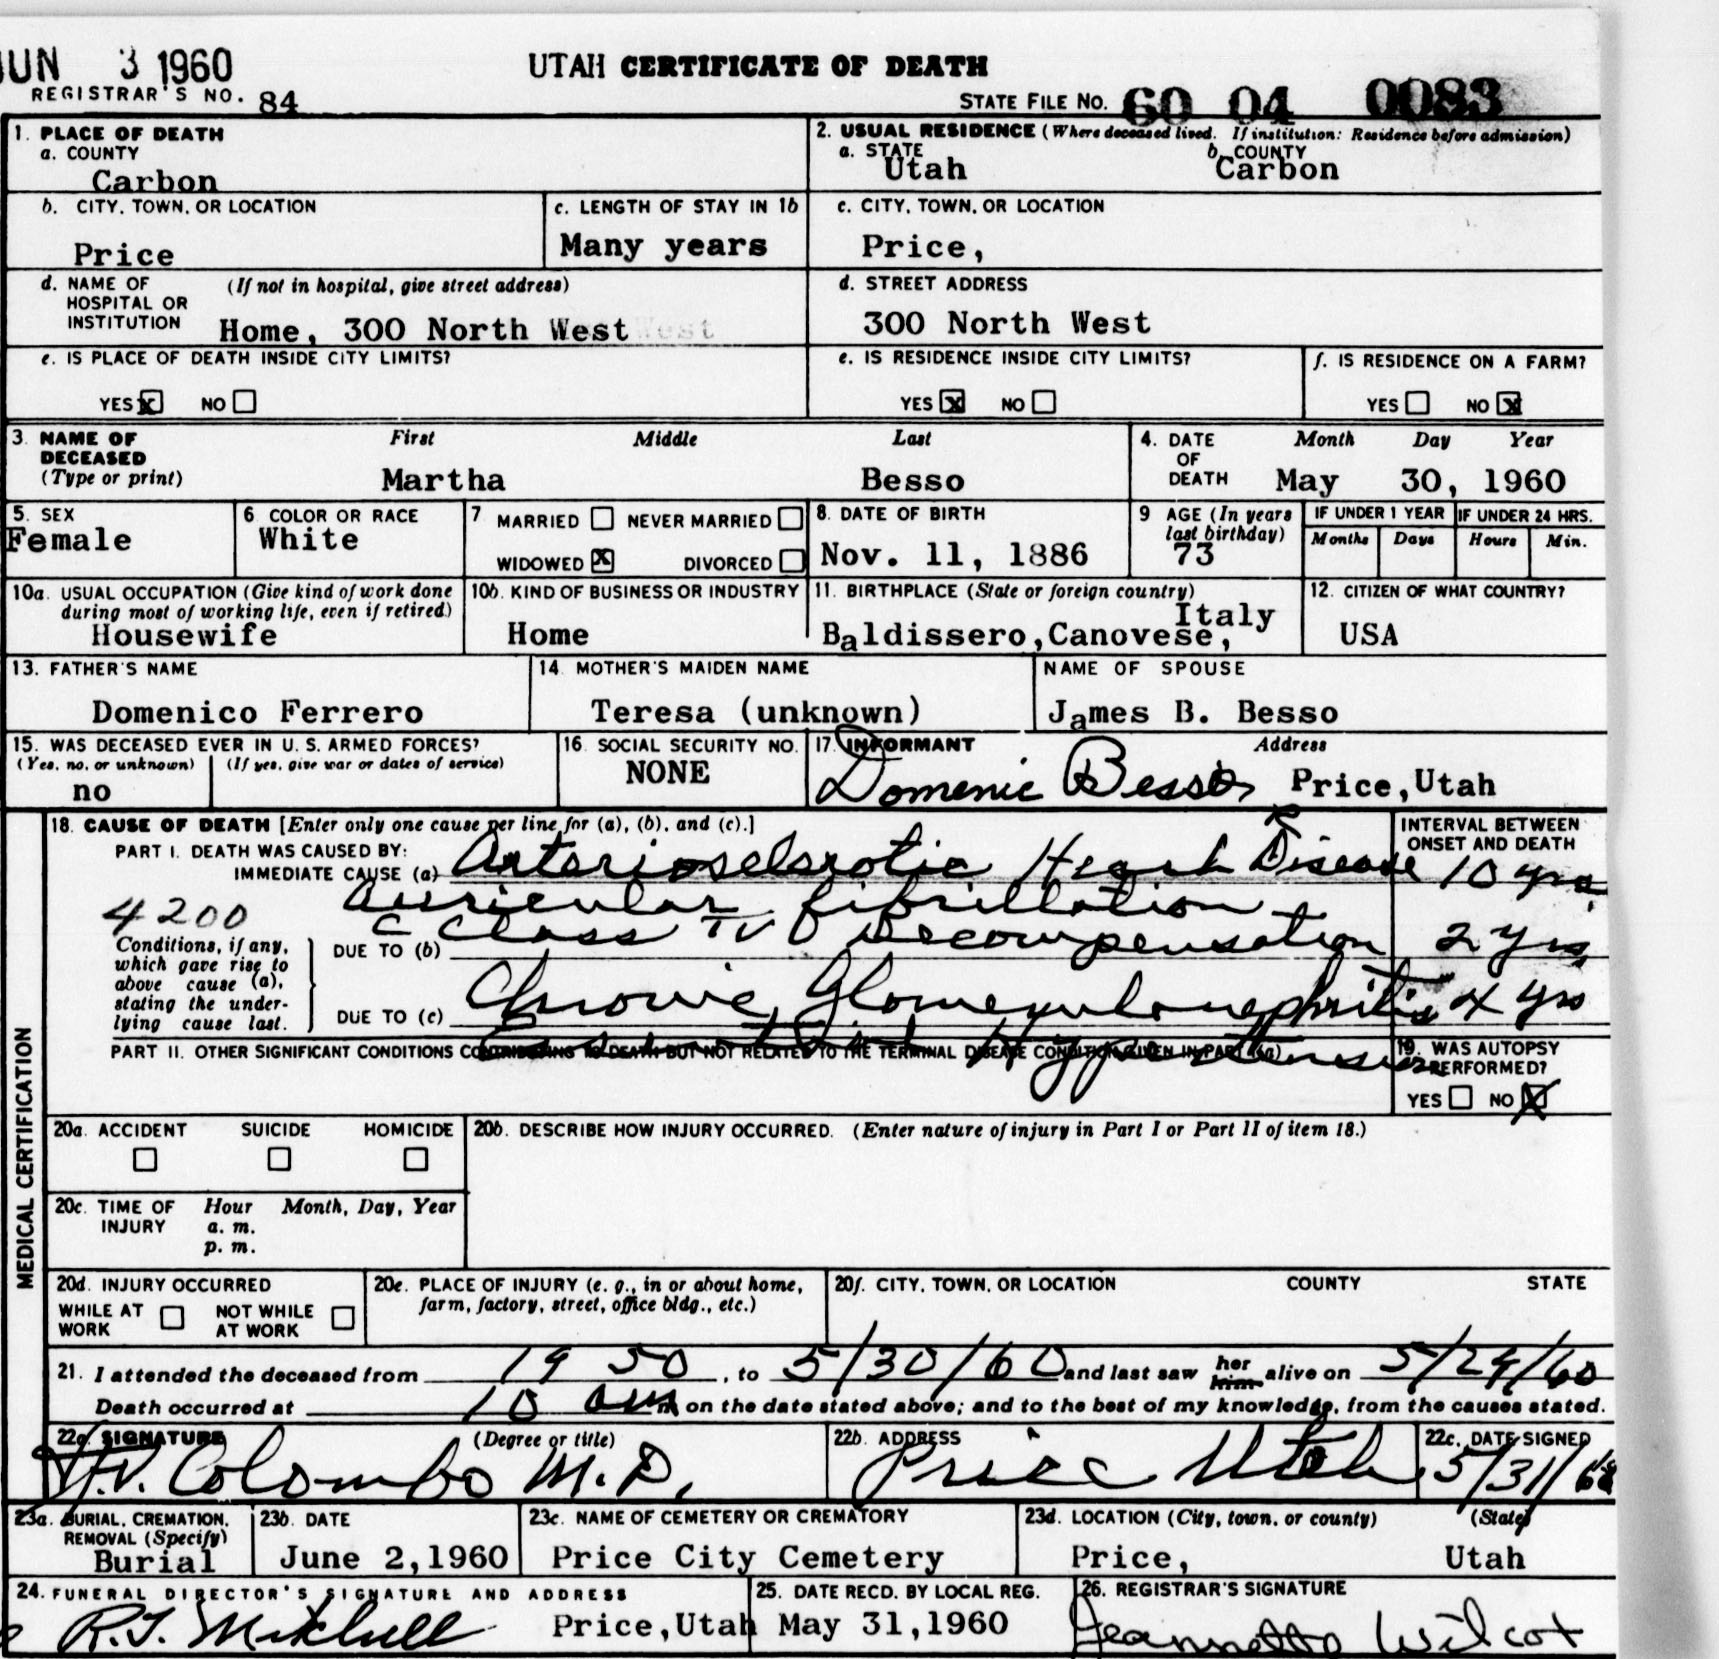 JUN 3 1960
UTAH CERTIFICATE OF DEATH
REGISTRAR'S NO. 84
STATE FILE NO. 60 04 0083
1. PLACE OF DEATH
a. COUNTY
Carbon
2. USUAL RESIDENCE (Where deceased lived. If institution: Residence before admission)
a. STATE b. COUNTY
Utah Carbon
b. CITY, TOWN, OR LOCATION
Price
c. LENGTH OF STAY IN 1b
Many years
c. CITY, TOWN, OR LOCATION
Price,
d. NAME OF HOSPITAL OR INSTITUTION (If not in hospital, give street address)
Home, 300 North West
d. STREET ADDRESS
300 North West
e. IS PLACE OF DEATH INSIDE CITY LIMITS?
YES X NO
e. IS RESIDENCE INSIDE CITY LIMITS?
YES X NO
f. IS RESIDENCE ON A FARM?
YES NO X
3. NAME OF DECEASED (Type or print) First Middle Last
Martha Besso
4. DATE OF DEATH Month Day Year
May 30, 1960
5. SEX
Female
6 COLOR OR RACE
White
7 MARRIED NEVER MARRIED
WIDOWED X DIVORCED
8. DATE OF BIRTH
Nov. 11, 1886
9 AGE (In years last birthday)
73
IF UNDER 1 YEAR IF UNDER 24 HRS.
Months Days Hours Min.
10a. USUAL OCCUPATION (Give kind of work done during most of working life, even if retired)
Housewife
10b. KIND OF BUSINESS OR INDUSTRY
Home
11. BIRTHPLACE (State or foreign country)
Baldissero, Canovese, Italy
12. CITIZEN OF WHAT COUNTRY?
USA
13. FATHER'S NAME
Domenico Ferrero
14. MOTHER'S MAIDEN NAME
Teresa (unknown)
NAME OF SPOUSE
James B. Besso
15. WAS DECEASED EVER IN U. S. ARMED FORCES?
(Yes, no, or unknown) (If yes, give war or dates of service)
no
16. SOCIAL SECURITY NO.
NONE
17. INFORMANT Address
Domenic Besso Price, Utah
MEDICAL CERTIFICATION
18. CAUSE OF DEATH [Enter only one cause per line for (a), (b), and (c).]
INTERVAL BETWEEN ONSET AND DEATH
PART I. DEATH WAS CAUSED BY:
IMMEDIATE CAUSE (a) Arteriosclerotic Heart Disease 10 yrs
auricular fibrillation
4200
Conditions, if any, which gave rise to above cause (a), stating the underlying cause last.
DUE TO (b) c Class IV D Decompensation 2 yrs
DUE TO (c) Chronic Glomerulonephritis 4 yrs
Hypertension
PART II. OTHER SIGNIFICANT CONDITIONS CONTRIBUTING TO DEATH BUT NOT RELATED TO THE TERMINAL DISEASE CONDITION GIVEN IN PART I(a)
19. WAS AUTOPSY PERFORMED?
YES NO X
20a. ACCIDENT SUICIDE HOMICIDE
20b. DESCRIBE HOW INJURY OCCURRED. (Enter nature of injury in Part I or Part II of item 18.)
20c. TIME OF INJURY Hour Month, Day, Year
a. m.
p. m.
20d. INJURY OCCURRED
WHILE AT WORK NOT WHILE AT WORK
20e. PLACE OF INJURY (e. g., in or about home, farm, factory, street, office bldg., etc.)
20f. CITY, TOWN, OR LOCATION COUNTY STATE
21. I attended the deceased from 1950, to 5/30/60 and last saw her him alive on 5/29/60
Death occurred at 10 am m on the date stated above; and to the best of my knowledge, from the causes stated.
22a. SIGNATURE (Degree or title)
Colombo M.D.
22b. ADDRESS
Price Utah
22c. DATE SIGNED
5/31/60
23a. BURIAL, CREMATION, REMOVAL (Specify)
Burial
23b. DATE
June 2, 1960
23c. NAME OF CEMETERY OR CREMATORY
Price City Cemetery
23d. LOCATION (City, town, or county) (State)
Price, Utah
24. FUNERAL DIRECTOR'S SIGNATURE AND ADDRESS
R.J. Mitchell Price, Utah
25. DATE RECD. BY LOCAL REG.
May 31, 1960
26. REGISTRAR'S SIGNATURE
Jeannette Wilcox